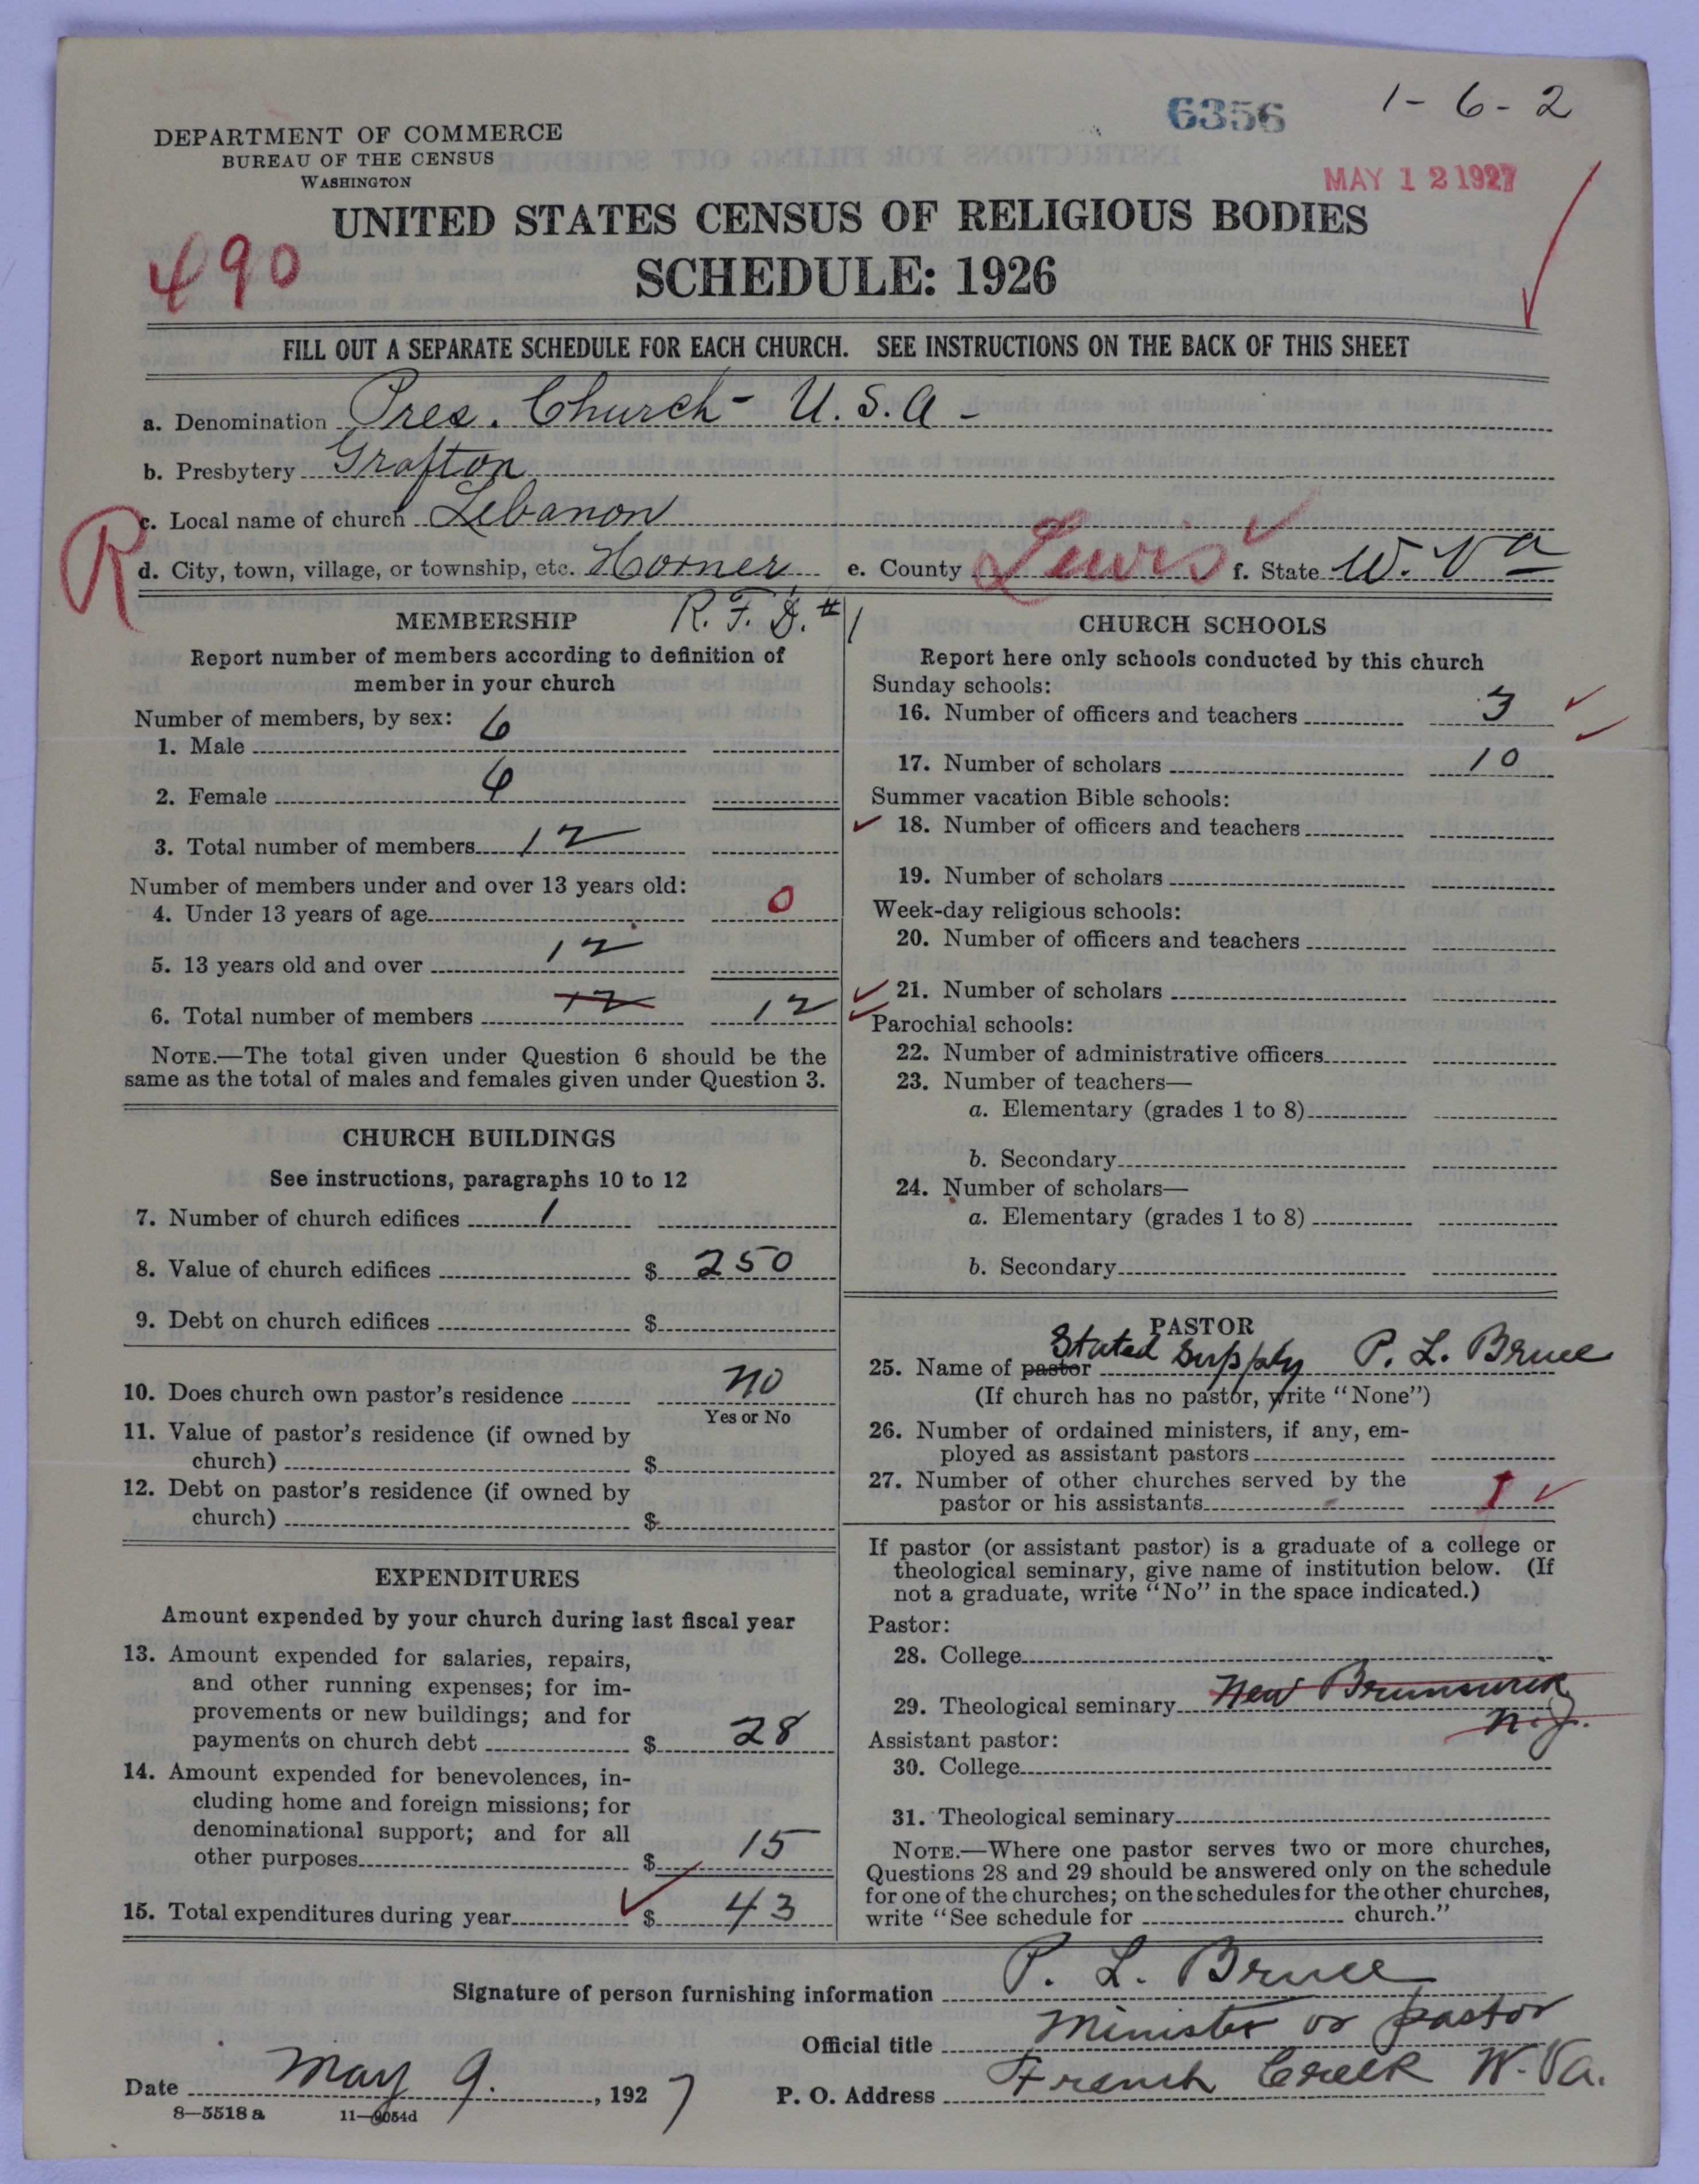 6356
1-6-2
DEPARTMENT OF COMMERCE
BUREAU OF THE CENSUS
WASHINGTON
MAY 12 1927
UNITED STATES CENSUS OF RELIGIOUS BODIES
490
SCHEDULE: 1926
FILL OUT A SEPARATE SCHEDULE FOR EACH CHURCH. SEE INSTRUCTIONS ON THE BACK OF THIS SHEET
a. Denomination Pres. Church - U.S.A -
b. Presbytery Grafton
c. Local name of church Lebanon
R
d. City, town, village, or township, etc. Horner e. County Lewis f. State W. Va
R. F. D. #1
MEMBERSHIP
Report number of members according to definition of
member in your church
Number of members, by sex:
1. Male 6
2. Female 6
3. Total number of members 12
Number of members under and over 13 years old:
4. Under 13 years of age 0
5. 13 years old and over 12
6. Total number of members 12 12
NOTE.—The total given under Question 6 should be the
same as the total of males and females given under Question 3.
CHURCH BUILDINGS
See instructions, paragraphs 10 to 12
7. Number of church edifices 1
8. Value of church edifices $ 250
9. Debt on church edifices $
10. Does church own pastor's residence no
Yes or No
11. Value of pastor's residence (if owned by
church) $
12. Debt on pastor's residence (if owned by
church) $
EXPENDITURES
Amount expended by your church during last fiscal year
13. Amount expended for salaries, repairs,
and other running expenses; for im-
provements or new buildings; and for
payments on church debt $ 28
14. Amount expended for benevolences, in-
cluding home and foreign missions; for
denominational support; and for all
other purposes $ 15
15. Total expenditures during year $ 43
CHURCH SCHOOLS
Report here only schools conducted by this church
Sunday schools:
16. Number of officers and teachers 3
17. Number of scholars 10
Summer vacation Bible schools:
18. Number of officers and teachers
19. Number of scholars
Week-day religious schools:
20. Number of officers and teachers
21. Number of scholars
Parochial schools:
22. Number of administrative officers
23. Number of teachers—
a. Elementary (grades 1 to 8)
b. Secondary
24. Number of scholars—
a. Elementary (grades 1 to 8)
b. Secondary
PASTOR
25. Name of pastor Stated Supply P. L. Bruce
(If church has no pastor, write "None")
26. Number of ordained ministers, if any, em-
ployed as assistant pastors
27. Number of other churches served by the
pastor or his assistants 1
If pastor (or assistant pastor) is a graduate of a college or
theological seminary, give name of institution below. (If
not a graduate, write "No" in the space indicated.)
Pastor:
28. College
29. Theological seminary New Brunswick
N.J.
Assistant pastor:
30. College
31. Theological seminary
NOTE.—Where one pastor serves two or more churches,
Questions 28 and 29 should be answered only on the schedule
for one of the churches; on the schedules for the other churches,
write "See schedule for church."
Signature of person furnishing information P. L. Bruce
Official title Minister or pastor
Date May 9. , 1927 P. O. Address French Creek W. Va.
8—5518 a 11—9054d